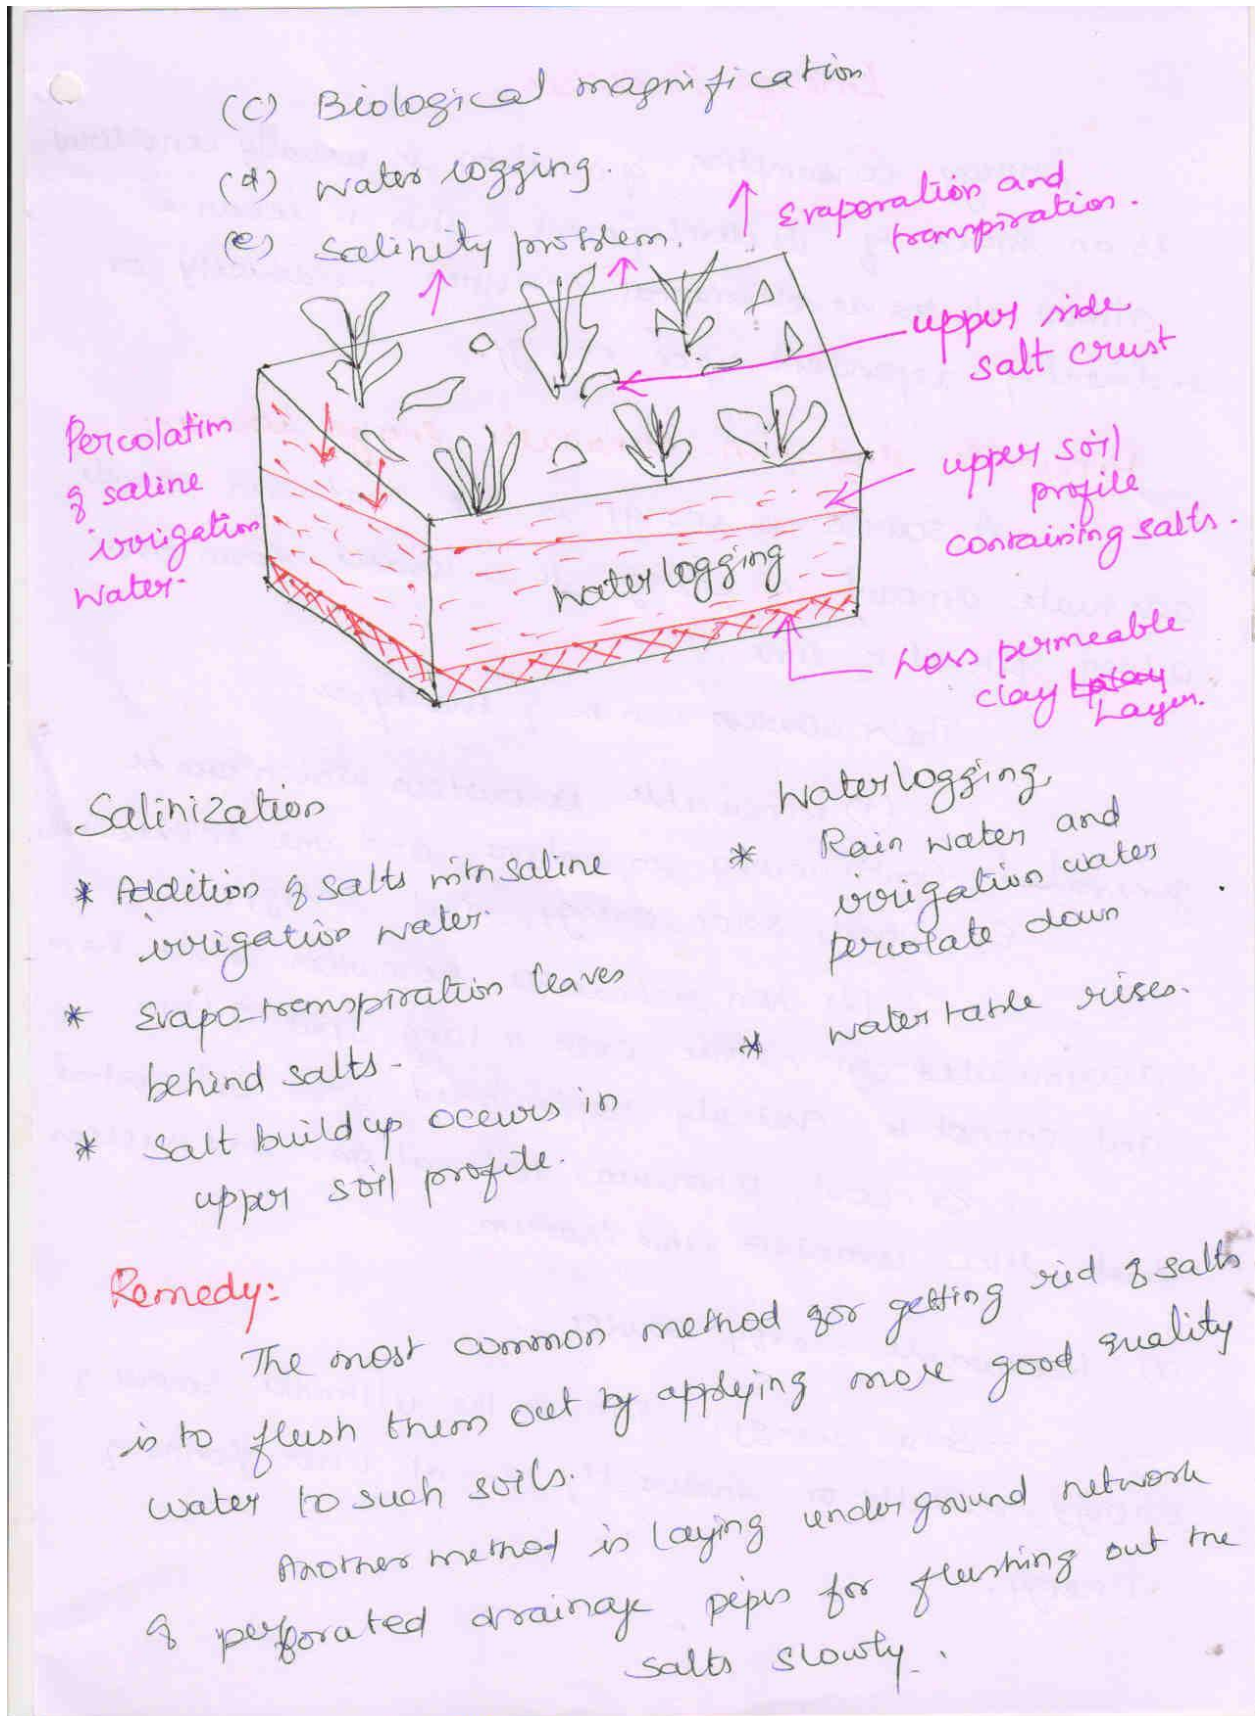 (c) Biological magnification
(d) water logging.
(e) Salinity problem.
Evaporation and
transpiration.
upper side
salt crust
Percolation
of saline
irrigation
water.
upper soil
profile
containing salts.
Water logging
Less permeable
clay
Layer.
Salinization
* Addition of salts with saline
irrigation water.
* Evapo-transpiration leaves
behind salts.
* Salt build up occurs in
upper soil profile.
Water logging
* Rain water and
irrigation water
percolate down
* water table rises.
Remedy:
The most common method for getting rid of salts
is to flush them out by applying more good quality
water to such soils.
Another method is laying underground network
of perforated drainage pipes for flushing out the
salts slowly.